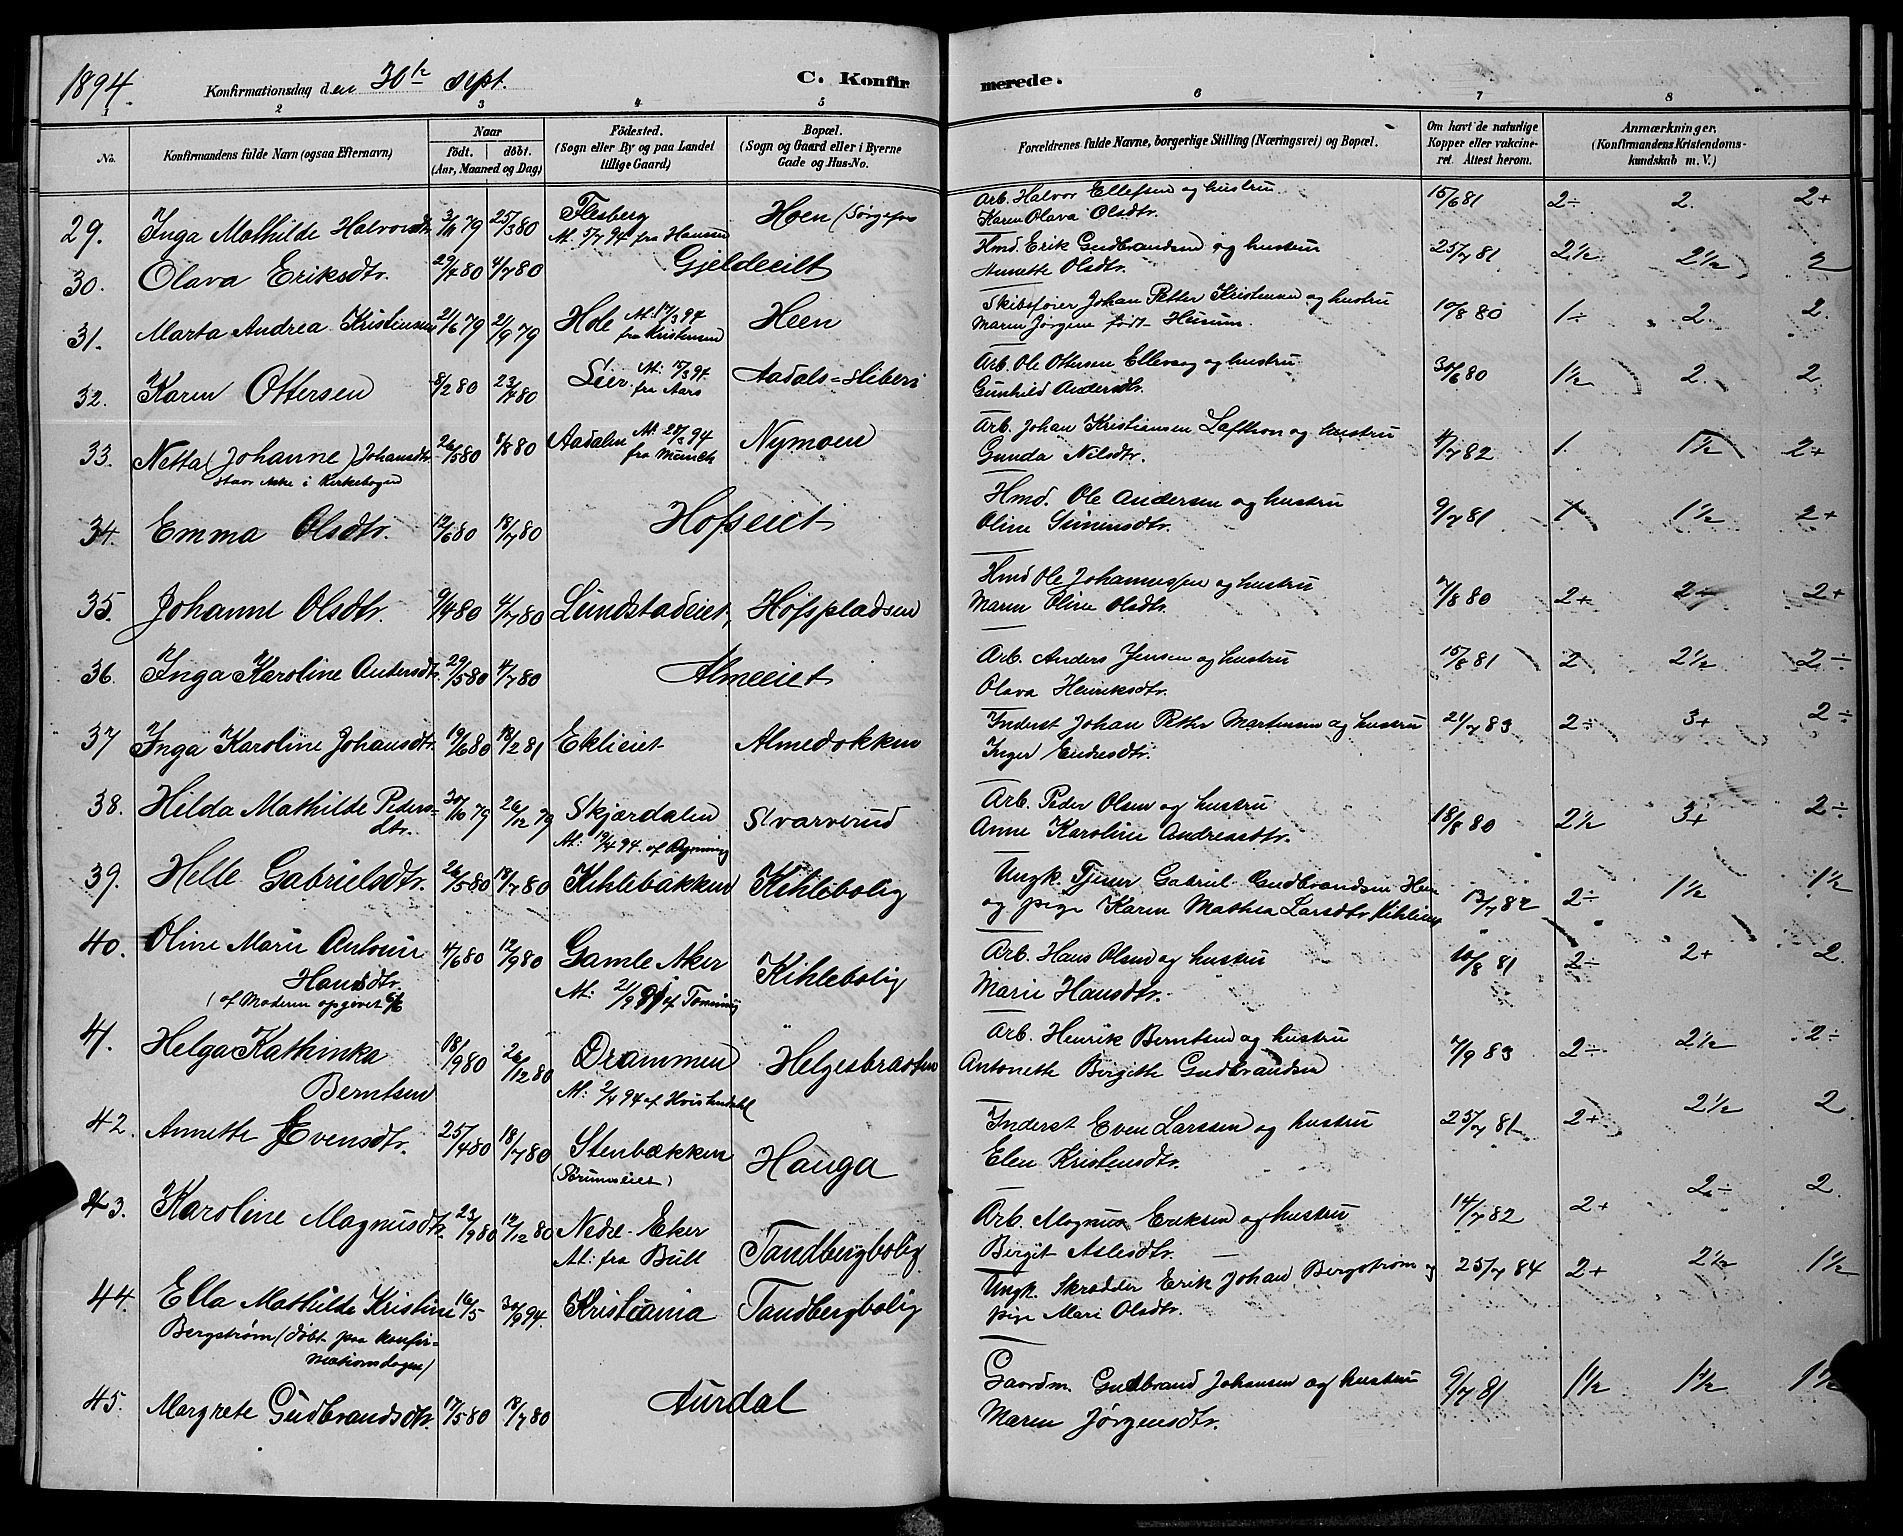 1894. Konfirmationsdag den 30te Sept. C. Konfirmerede.
1 2 3 4 5 6 7 8
No. Konfirmandens fulde Navn (ogsaa Efternavn) Naar födt. döbt. (Aar, Maaned og Dag) Födested. (Sogn eller By og paa Landet tillige Gaard) Bopæl. (Sogn og Gaard eller i Byerne Gade og Hus-No. Forældrenes fulde Navne, borgerlige Stilling (Næringsvei) og Bopæl. Om havt de naturlige Kopper eller vakcineret. Attest herom. Anmærkninger. (Konfirmandens Kristendomskundskab m. V.)
29. Inga Mathilde Halvorsdtr. 3/11 79 25/3 80 Flesberg Hoen Arb. Halvor Ellefsen og hustru 15/6 81 2÷ 2. 2+
At. 5/7 94 fra Hansen Karen Olava Olsdtr.
30. Olava Eriksdtr. 29/4 80 4/7 80 Gjeldeeiet Hmd. Erik Gudbrandsen og hustru 25/7 81 2½ 2½ 2
Anette Olsdtr.
31. Marta Andrea Kristensen 21/6 79 21/9 79 Hole At. 17/3 94 fra Kristensen Heen Skibsføier Johan Petter Kristensen og hustru 10/8 80 1÷ 2. 2.
Maren Jørgine født Husum.
32. Karen Ottersen 8/2 80 23/4 80 Lier At. 17/3 94 fra Aars Aadals=sliberi Arb. Ole Ottersen Ellevog og hustru 30/6 80 1½ 2. 2.
Gunhild Andersdtr.
33. Netta (Johanne) Johansdtr. 26/5 80 1/8 80 Aadalen At. 20/3 94 fra Munch Nymoen Arb. Johan Kristiansen Lafthon og hustru 4/7 82 1. 1½ 2+
staar ikke i Kirkebogen Gunda Nilsdtr.
34. Emma Olsdtr. 12/6 80 18/7 80 Hofseiet Hmd. Ole Andersen og hustru 9/7 81 1 1½ 2+
Oline Simensdtr.
35. Johanne Olsdtr. 9/4 80 4/7 80 Lundstadeiet, Hofspladsen Hmd Ole Johannessen og hustru 7/8 80 2+ 2÷ 2+
Maren Oline Olsdtr.
36. Inga Karoline Andersdtr. 29/5 80 4/7 80 Almeeiet Arb. Anders Jensen og hustru 15/8 81 2 2½ 2÷
Olava Henriksdtr.
37 Inga Karoline Johansdtr. 19/6 80 18/2 81 Eklieiet Almedokken Inderst Johan Petter Martinsen og hustru 21/7 83 2÷ 3+ 2÷
Inger Endresdtr.
38. Hilda Mathilde Pedersdtr. 30/10 79 26/12 79 Skjærdalen Svarverud Arb. Peder Olsen og hustru 18/8 80 2½ 3+ 2÷
At: 19/4 94. af Ryning Anne Karoline Andreasdtr.
39. Helle Gabrielsdtr. 26/5 80 18/7 80 Kihlebakken Kihlebolig Ungk. Tjener Gabriel Gudbrandsen Hen 13/7 82 2÷ 1½ 1½
og pige Karen Mathea Larsdtr. Kihlieiet
40. Oline Marie Antonie 4/6 80 12/9 80 Gamle Aker Kihlebolig Arb. Hans Olsen og hustru 10/8 81 2÷ 2+ 2.
Hansdtr. At: 2/9 91 af Marie Hansdtr.
(af Moderen opgivet 6/6
41. Helga Kathinka 18/9 80 26/12 80 Drammen Helgesbraaten Arb. Henrik Berntsen og hustru 7/9 83 2÷ 2½ 2÷
Berntsen At: 2/4 94 af Hvistendahl Antonette Birgitte Gudbrandsen
42. Annette Evensdtr. 25/4 80 18/7 80 Stenbækken Hauga Inderst Even Larssen og hustru 25/7 81 2+ 2½ 2.
Elen Kristensdtr.
43. Karoline Magnusdtr. 23/9 80 12/12 80 Nedre-Eker Tandbergbolig Arb. Magnus Eriksen og hustru 14/7 82 2+ 2÷ 2.
At: fra Bull Bergit Aslesdtr.
44. Ella Mathilde Kristine 16/5 30/9 94. Kristiania Tandbergbolig Ungk. Skrædder Erik Johan Bergstrøm og 25/7 84 2+ 2½ 1½
Bergstrøm (døbt paa konfirmationsdagen) pige Mari Olsdtr.
45. Margrete Gudbrandsdtr. 17/5 80 18/7 80 Aurdal Gaardm. Gudbrand Johansen og hustru 9/7 81 1½ 1½ 1½
Maren Jørgensdtr.